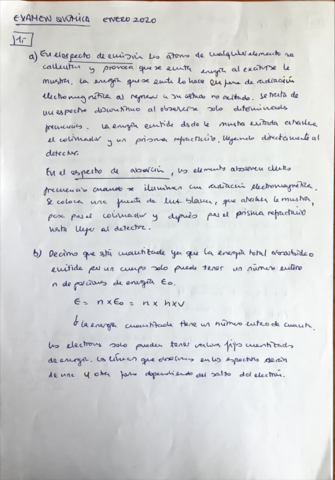 EXAMEN QUÍMICA ENERO 2020
1.-
a) En el espectro de emisión los átomos de cualquier elemento se
calientan y provoca que se emita energía al excitarse la
muestra, la energía que se emite lo hace en forma de radiación
electromagnética al regresar a su estado no excitado. Se trata de
un espectro discontinuo al observarse solo determinadas
frecuencias. La energía emitida desde la muestra excitada atraviesa
el colimador y un prisma refractario, llegando directamente al
detector.
En el espectro de absorción, los elementos absorben ciertas
frecuencias cuando se iluminan con radiación electromagnética.
Se coloca una fuente de luz blanca, que atraviesa la muestra,
pasa por el colimador y después por el prisma refractario
hasta llegar al detector.
b) Decimos que está cuantizada ya que la energía total absorbida o
emitida por un cuerpo solo puede tener un número entero
n de porciones de energía E₀.
E = n × E₀ = n × h × ν
la energía cuantizada tiene un número entero de cuantos.
Los electrones solo pueden tener valores fijos cuantizados
de energía. Las líneas que observamos en los espectros serán
de una u otra forma dependiendo del salto del electrón.